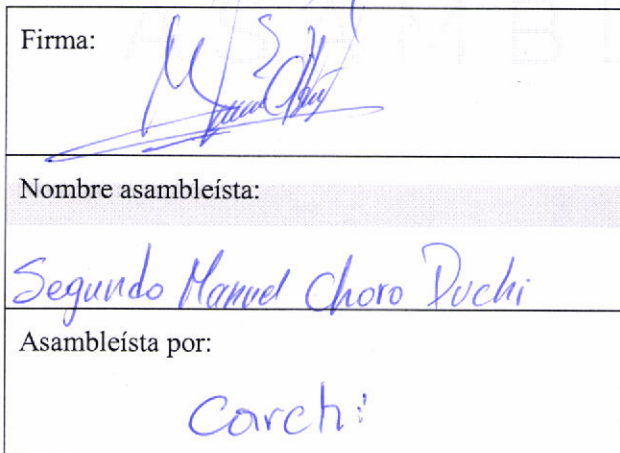 Firma:
Nombre asambleísta:
Segundo Manuel Choro Duchi
Asambleísta por:
Carchi